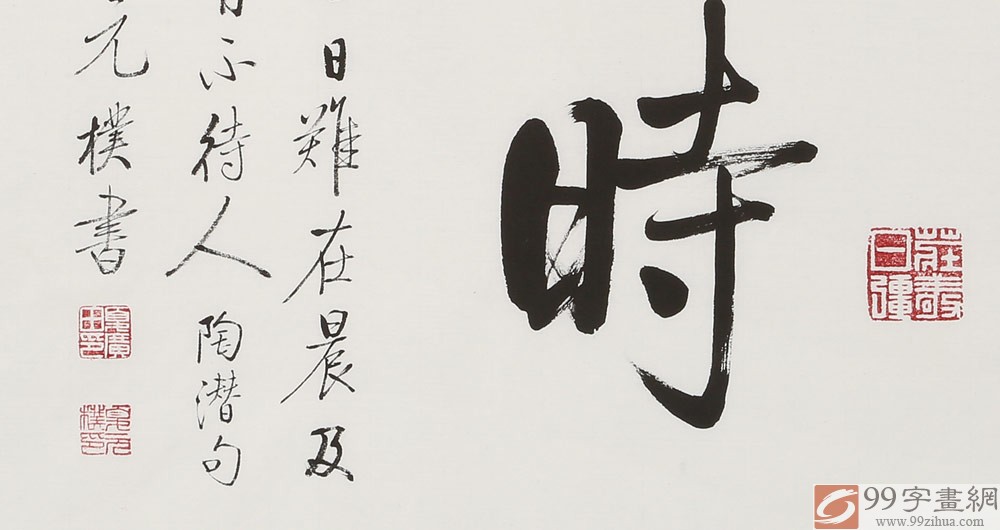 時
日難在晨及
不待人 陶潜句
元樸書
99字畫網
www.99zihua.com